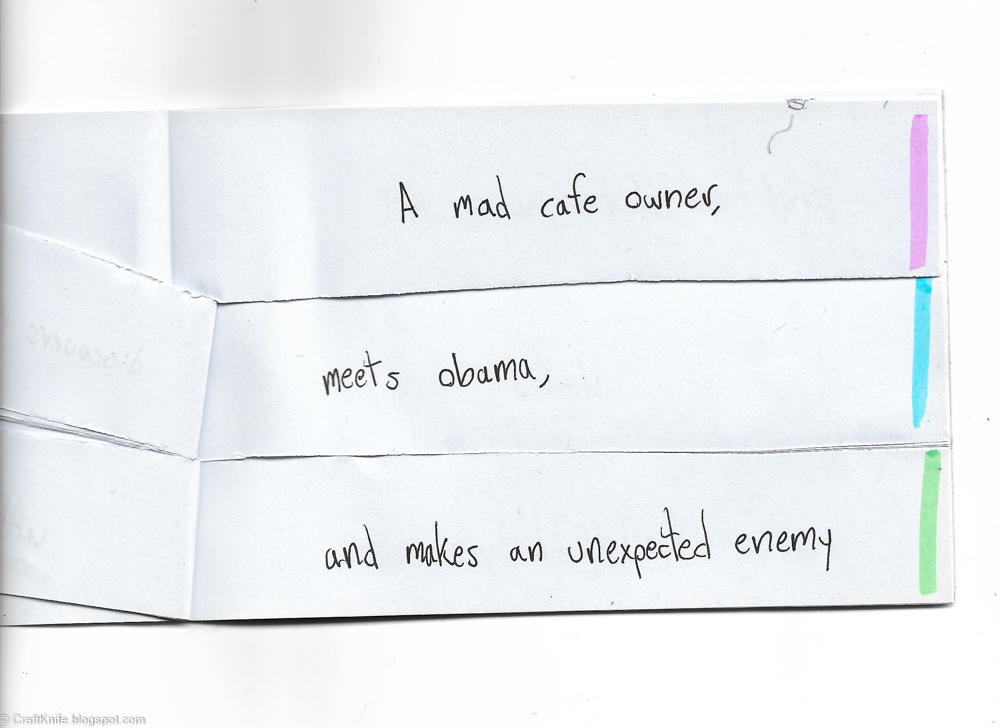 A mad cafe owner,
meets obama,
discovers
and makes an unexpected enemy
© CraftKnife.blogspot.com